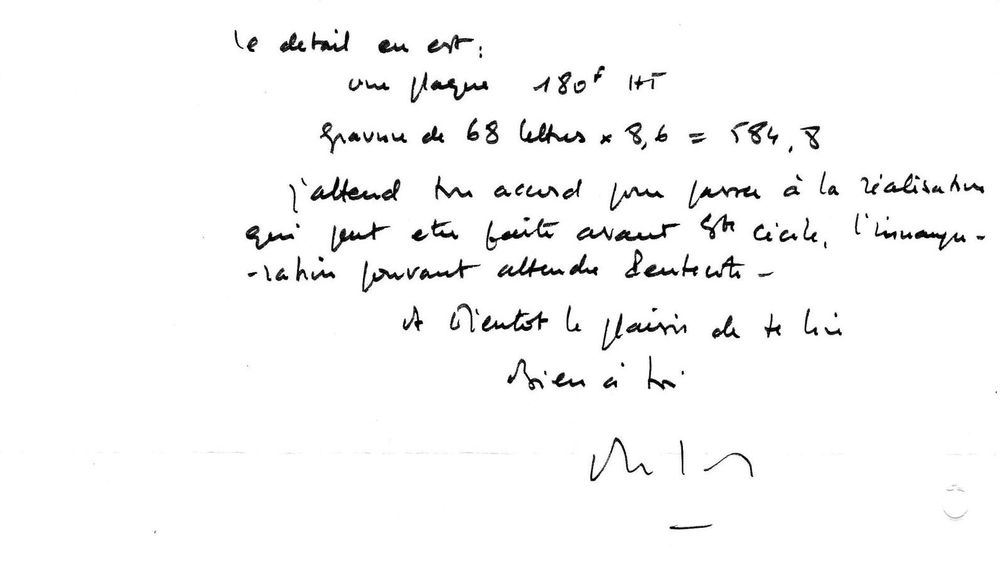 le detail en est :
une plaque 180F HT
gravure de 68 lettres x 8,6 = 584,8
j'attend ton accord pour passer à la réalisation
qui peut etre faite avant Ste Cécile, l'innaugu-
-ration pouvant attendre Pentecote -
A Bientot le plaisir de te lire
Bien à toi